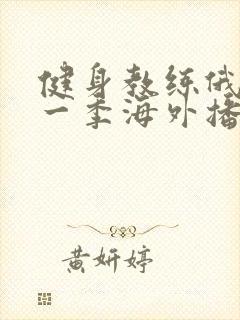 健身教练俄
一季海外播
黄妍婷